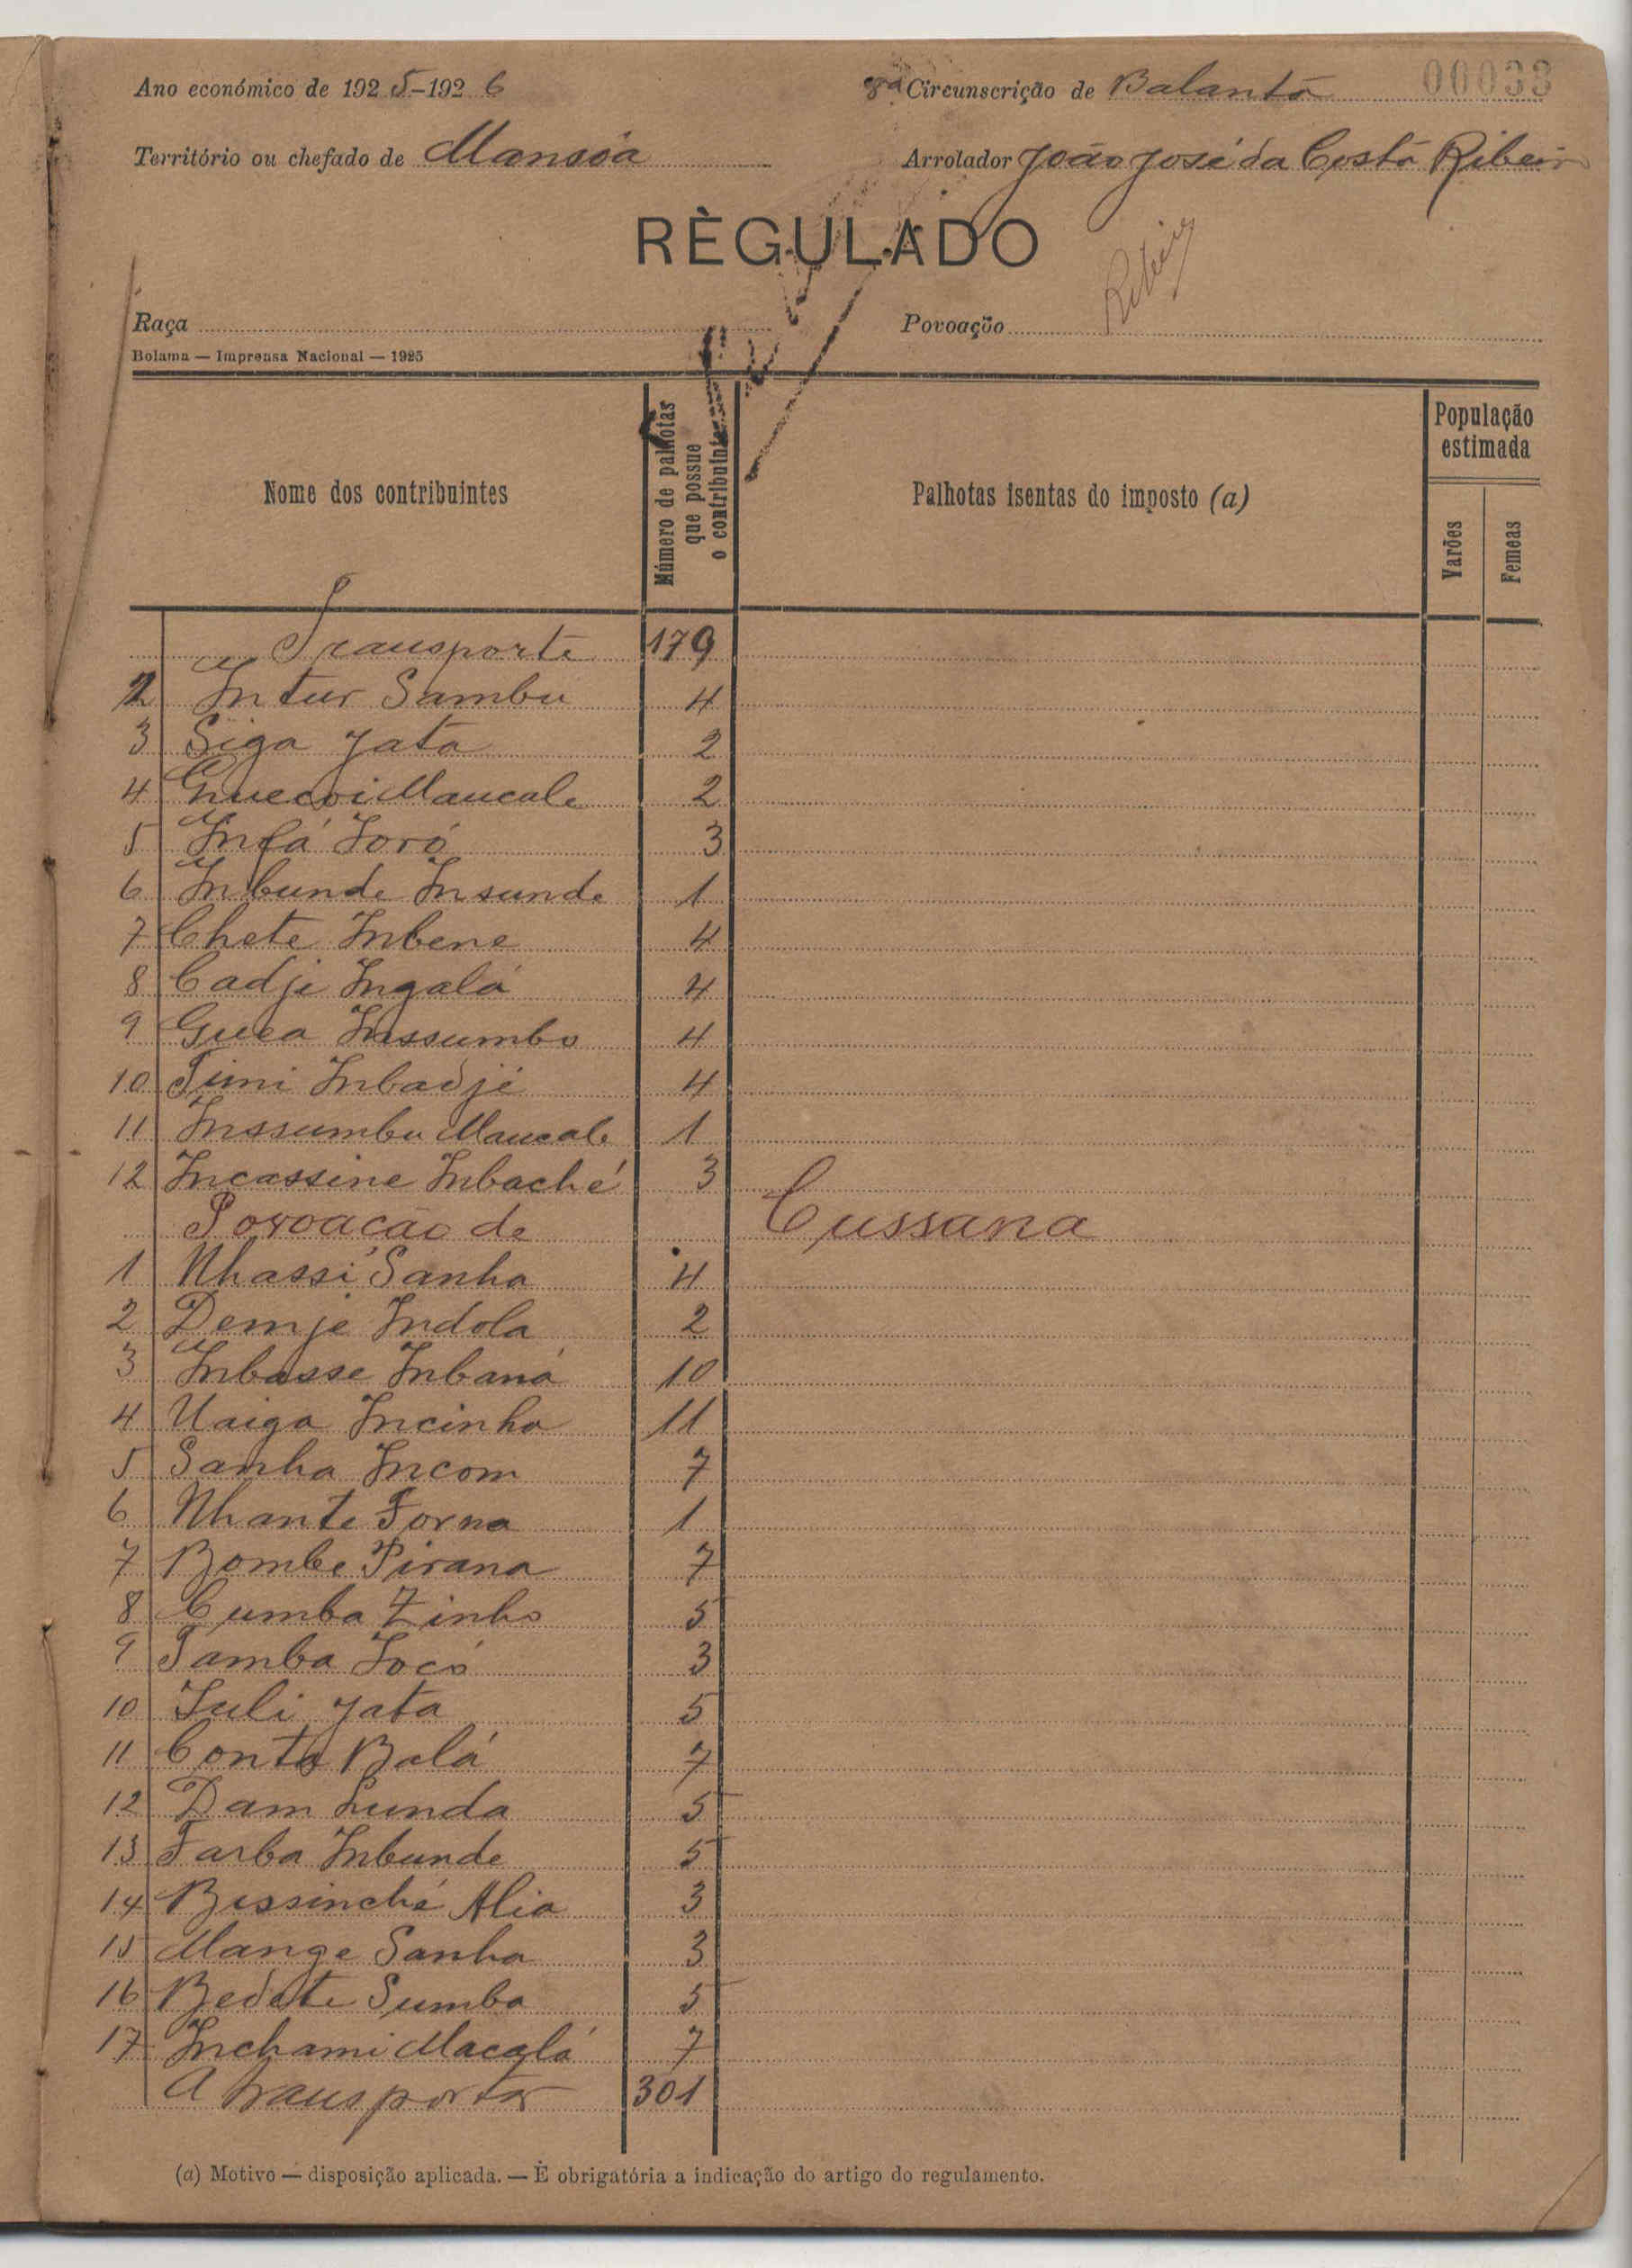 Ano económico de 1925-1926
8ª Circunscrição de Balanta
00033
Território ou chefado de Mansôa
Arrolador João José da Costa Ribeiro
RÈGULADO
Ribeiro
Raça
Povoação
Bolama — Imprensa Nacional — 1925
Nome dos contribuintes
Número de palhotas que possue o contribuinte
Palhotas isentas do imposto (a)
População estimada
Varões
Femeas
Transporte 179
2 Intur Sambu 4
3 Siga Yata 2
4 Maucale 2
5 Infá Toró 3
6 Inbunde Insunde 1
7 Chete Inbene 4
8 Cadji Ingalá 4
9 Guea Inssumbo 4
10 Timi Inbadjé 4
11 Inssumbu Maucale 1
12 Incassine Inbaché 3
Povoação de Cussana
1 Nhassi Sanha 4
2 Demje Indola 2
3 Inbasse Inbaná 10
4 Uaiga Incinha 11
5 Sanha Incom 7
6 Nhante Forna 1
7 Bombe Pirana 7
8 Cumba Zinho 5
9 Tamba Tocó 3
10 Tuli Yata 5
11 Conta Balá 7
12 Dam Lunda 5
13 Farba Inbunde 5
14 Bissinché Alia 3
15 Mange Sanha 3
16 Bedete Sumba 5
17 Inchami Macalá 7
A transportar 301
(a) Motivo — disposição aplicada. — È obrigatória a indicação do artigo do regulamento.